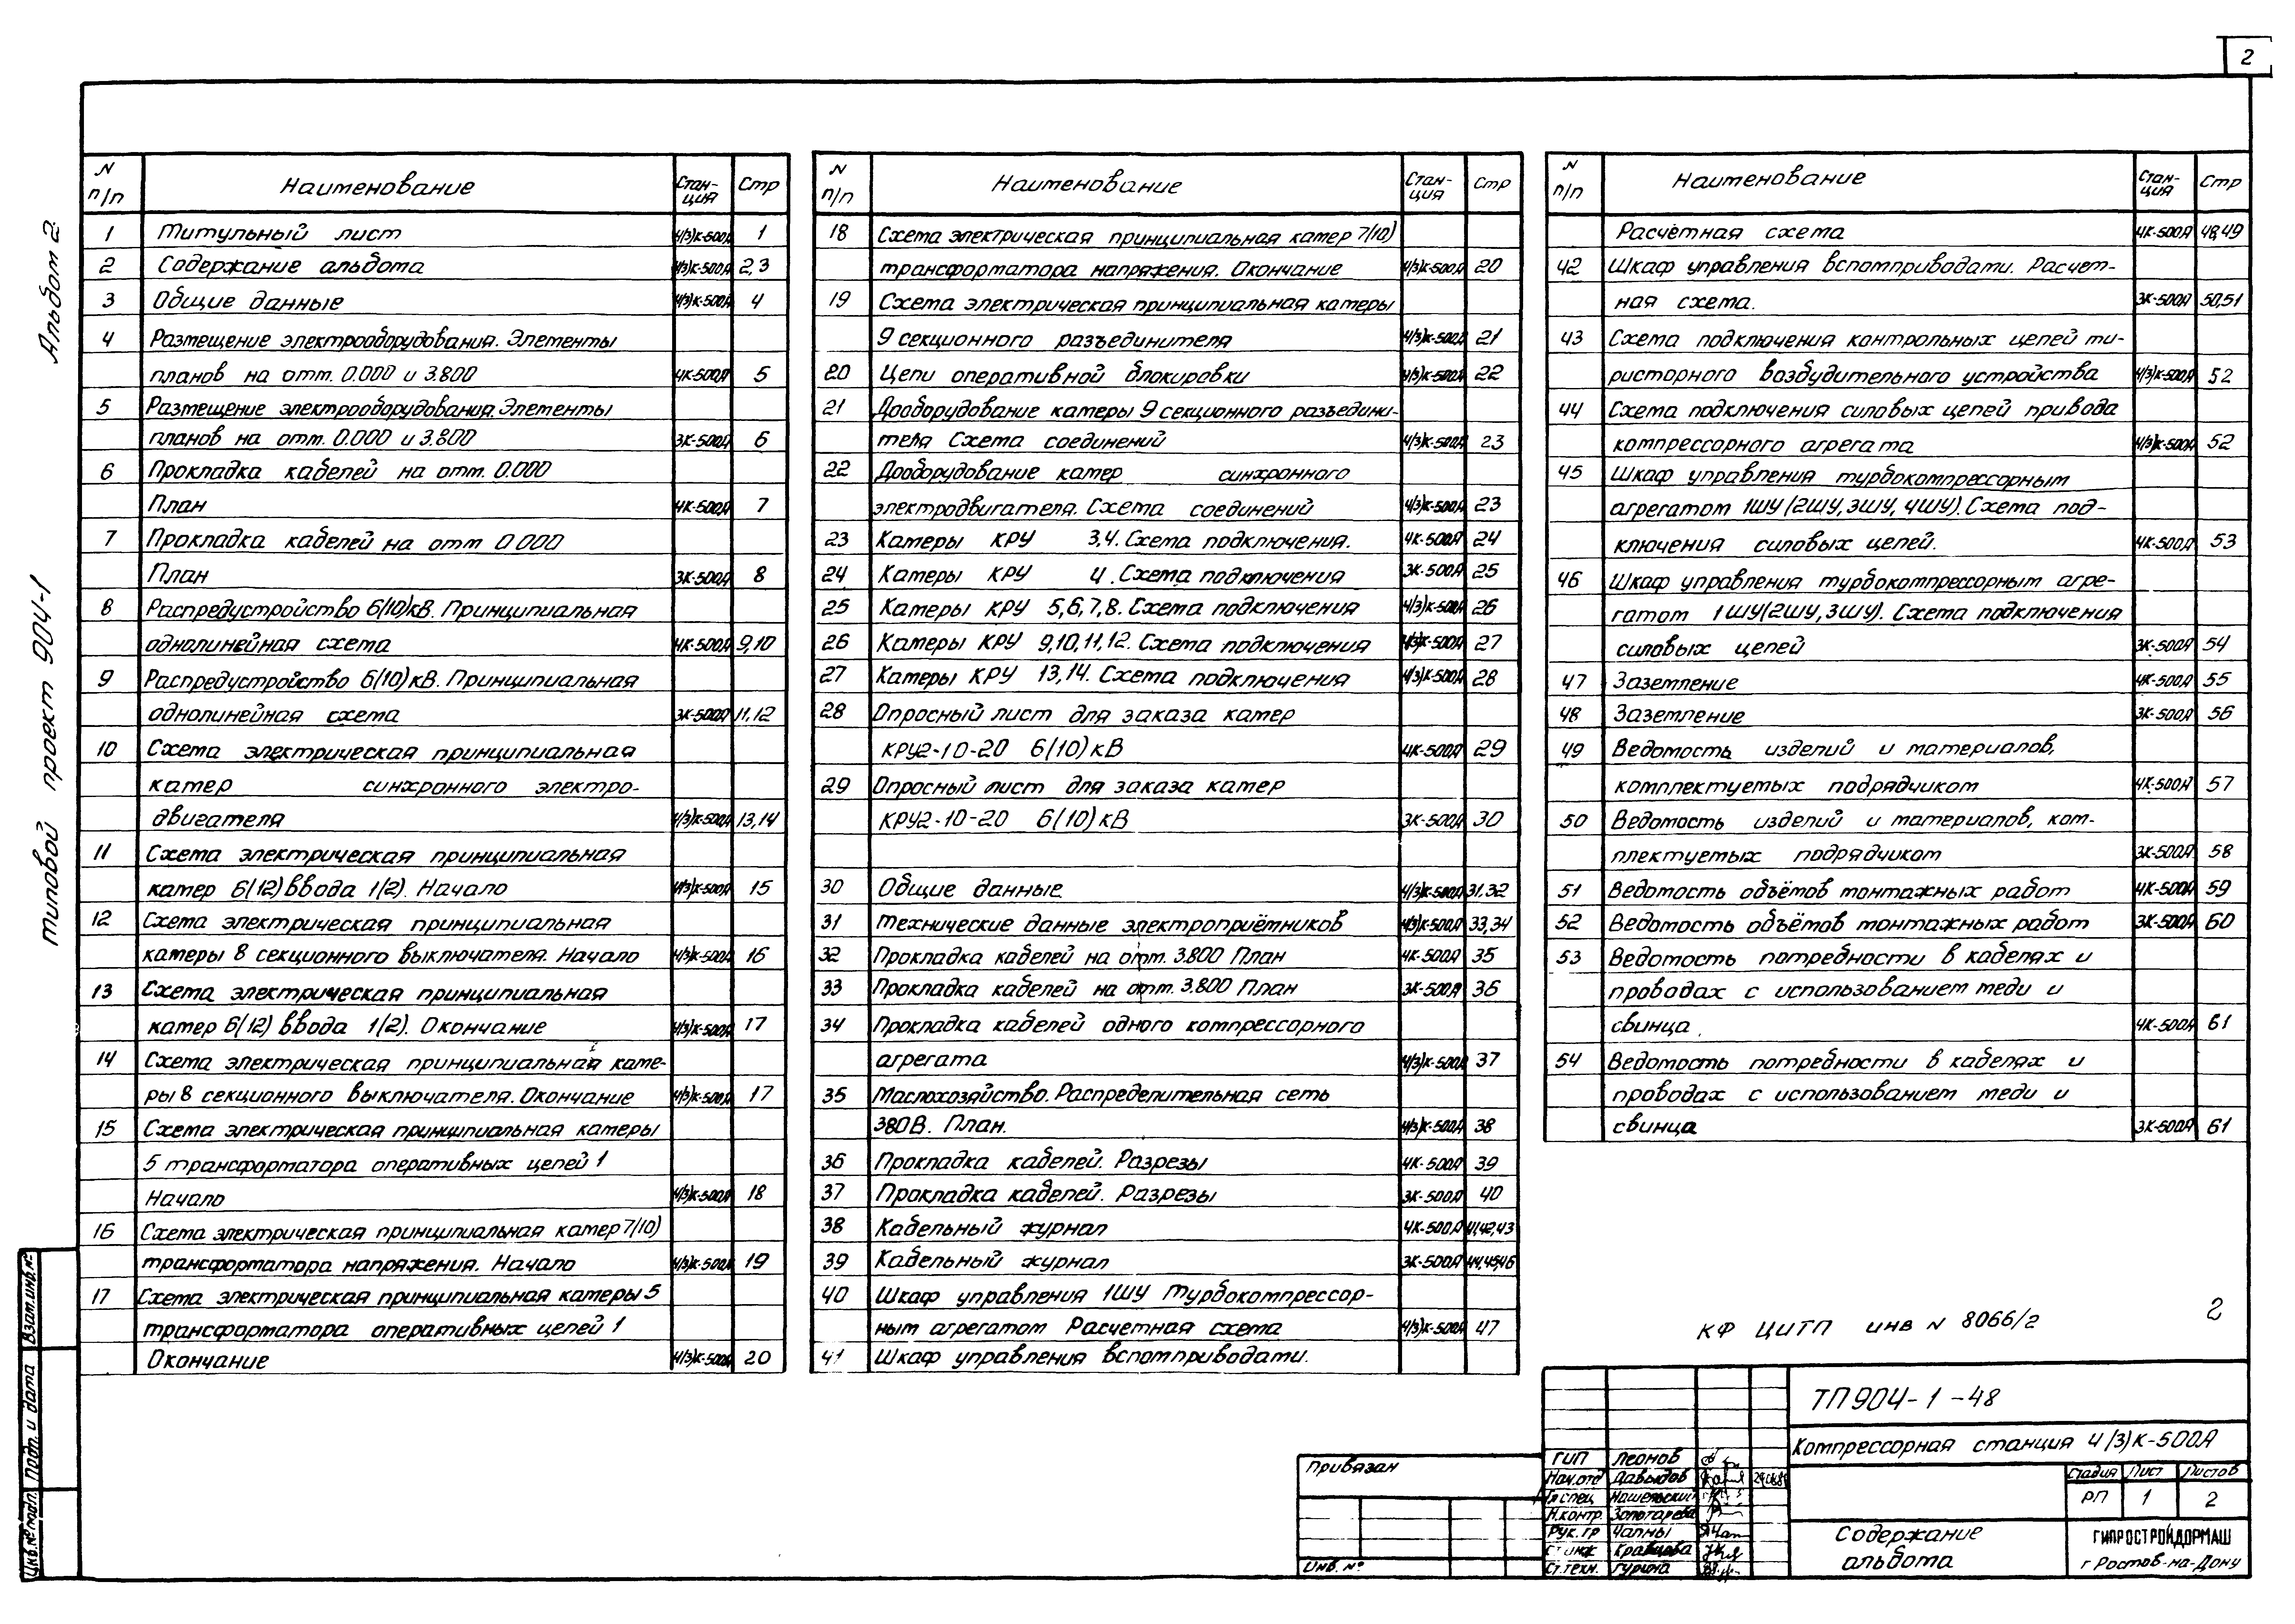 2
Альбом 2
типовой проект 904-1
N п/п Наименование Стан-ция Стр
1 Титульный лист 4(3)К-500А 1
2 Содержание альбома 4(3)К-500А 2,3
3 Общие данные 4(3)К-500А 4
4 Размещение электрооборудования. Элементы
планов на отм. 0.000 и 3.800 4К-500А 5
5 Размещение электрооборудования. Элементы
планов на отм. 0.000 и 3.800 3К-500А 6
6 Прокладка кабелей на отм. 0.000
План 4К-500А 7
7 Прокладка кабелей на отм 0.000
План 3К-500А 8
8 Распредустройство 6(10)кВ. Принципиальная
однолинейная схема 4К-500А 9,10
9 Распредустройство 6(10)кВ. Принципиальная
однолинейная схема 3К-500А 11,12
10 Схема электрическая принципиальная
камер синхронного электро-
двигателя 4(3)К-500А 13,14
11 Схема электрическая принципиальная
камер 6(12) ввода 1(2). Начало 4(3)К-500А 15
12 Схема электрическая принципиальная
камеры 8 секционного выключателя. Начало 4(3)К-500А 16
13 Схема электрическая принципиальная
камер 6(12) ввода 1(2). Окончание 4(3)К-500А 17
14 Схема электрическая принципиальная каме-
ры 8 секционного выключателя. Окончание 4(3)К-500А 17
15 Схема электрическая принципиальная камеры
5 трансформатора оперативных цепей 1
Начало 4(3)К-500А 18
16 Схема электрическая принципиальная камер 7(10)
трансформатора напряжения. Начало 4(3)К-500А 19
17 Схема электрическая принципиальная камеры 5
трансформатора оперативных цепей 1
Окончание 4(3)К-500А 20
N п/п Наименование Стан-ция Стр
18 Схема электрическая принципиальная камер 7(10)
трансформатора напряжения. Окончание 4(3)К-500А 20
19 Схема электрическая принципиальная камеры
9 секционного разъединителя 4(3)К-500А 21
20 Цепи оперативной блокировки 4(3)К-500А 22
21 Дооборудование камеры 9 секционного разъедини-
теля Схема соединений 4(3)К-500А 23
22 Дооборудование камер синхронного
электродвигателя. Схема соединений 4(3)К-500А 23
23 Камеры КРУ 3,4. Схема подключения. 4К-500А 24
24 Камеры КРУ 4. Схема подключения 3К-500А 25
25 Камеры КРУ 5,6,7,8. Схема подключения 4(3)К-500А 26
26 Камеры КРУ 9,10,11,12. Схема подключения 4(3)К-500А 27
27 Камеры КРУ 13,14. Схема подключения 4(3)К-500А 28
28 Опросный лист для заказа камер
КРУ2-10-20 6(10)кВ 4К-500А 29
29 Опросный лист для заказа камер
КРУ2-10-20 6(10)кВ 3К-500А 30
30 Общие данные 4(3)К-500А 31,32
31 Технические данные электроприёмников 4(3)К-500А 33,34
32 Прокладка кабелей на отм. 3.800 План 4К-500А 35
33 Прокладка кабелей на отм. 3.800 План 3К-500А 36
34 Прокладка кабелей одного компрессорного
агрегата 4(3)К-500А 37
35 Маслохозяйство. Распределительная сеть
380В. План. 4(3)К-500А 38
36 Прокладка кабелей. Разрезы 4К-500А 39
37 Прокладка кабелей. Разрезы 3К-500А 40
38 Кабельный журнал 4К-500А 41,42,43
39 Кабельный журнал 3К-500А 44,45,46
40 Шкаф управления 1ШУ турбокомпрессор-
ным агрегатом Расчетная схема 4(3)К-500А 47
41 Шкаф управления вспомприводами.
N п/п Наименование Стан-ция Стр
Расчётная схема 4К-500А 48,49
42 Шкаф управления вспомприводами. Расчет-
ная схема. 3К-500А 50,51
43 Схема подключения контрольных цепей ти-
ристорного возбудительного устройства 4(3)К-500А 52
44 Схема подключения силовых цепей привода
компрессорного агрегата 4(3)К-500А 52
45 Шкаф управления турбокомпрессорным
агрегатом 1ШУ (2ШУ, 3ШУ, 4ШУ). Схема под-
ключения силовых цепей. 4К-500А 53
46 Шкаф управления турбокомпрессорным агре-
гатом 1ШУ(2ШУ, 3ШУ). Схема подключения
силовых цепей 3К-500А 54
47 Заземление 4К-500А 55
48 Заземление 3К-500А 56
49 Ведомость изделий и материалов,
комплектуемых подрядчиком 4К-500А 57
50 Ведомость изделий и материалов, ком-
плектуемых подрядчиком 3К-500А 58
51 Ведомость объёмов монтажных работ 4К-500А 59
52 Ведомость объёмов монтажных работ 3К-500А 60
53 Ведомость потребности в кабелях и
проводах с использованием меди и
свинца. 4К-500А 61
54 Ведомость потребности в кабелях и
проводах с использованием меди и
свинца 3К-500А 61
КФ ЦИТП инв N 8066/2 2
ТП904-1-48
Компрессорная станция 4(3)К-500А
Стадия Лист Листов
РП 1 2
Содержание
альбома
ГИПРОСТРОЙДОРМАШ
г Ростов-на-Дону
ГИП Леонов
Нач.отд Давыдов
Гл спец Нашельский
Н.контр. Золотарева
Рук. гр Чапны
Ст инж Кравцова
Ст.техн. Гурина
Привязан
Инв. №
Взам.инв.№
Подп. и дата
Инв.№ подл.